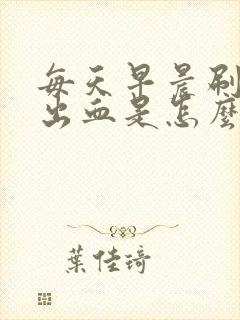 每天早晨刷
出血是怎麼
葉佳琦